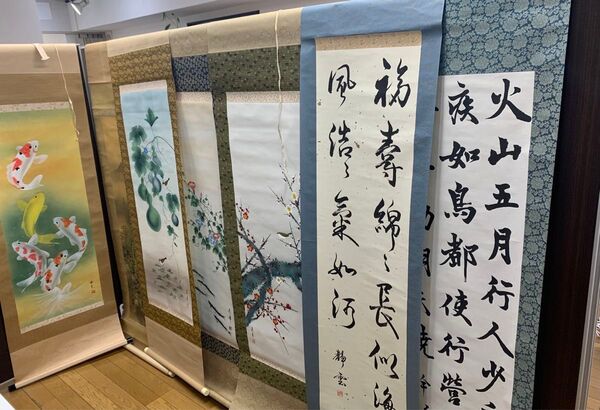 火山五月行人少
疾如鳥都使行營
福壽綿々長似海
風浩々氣如河
靜雲